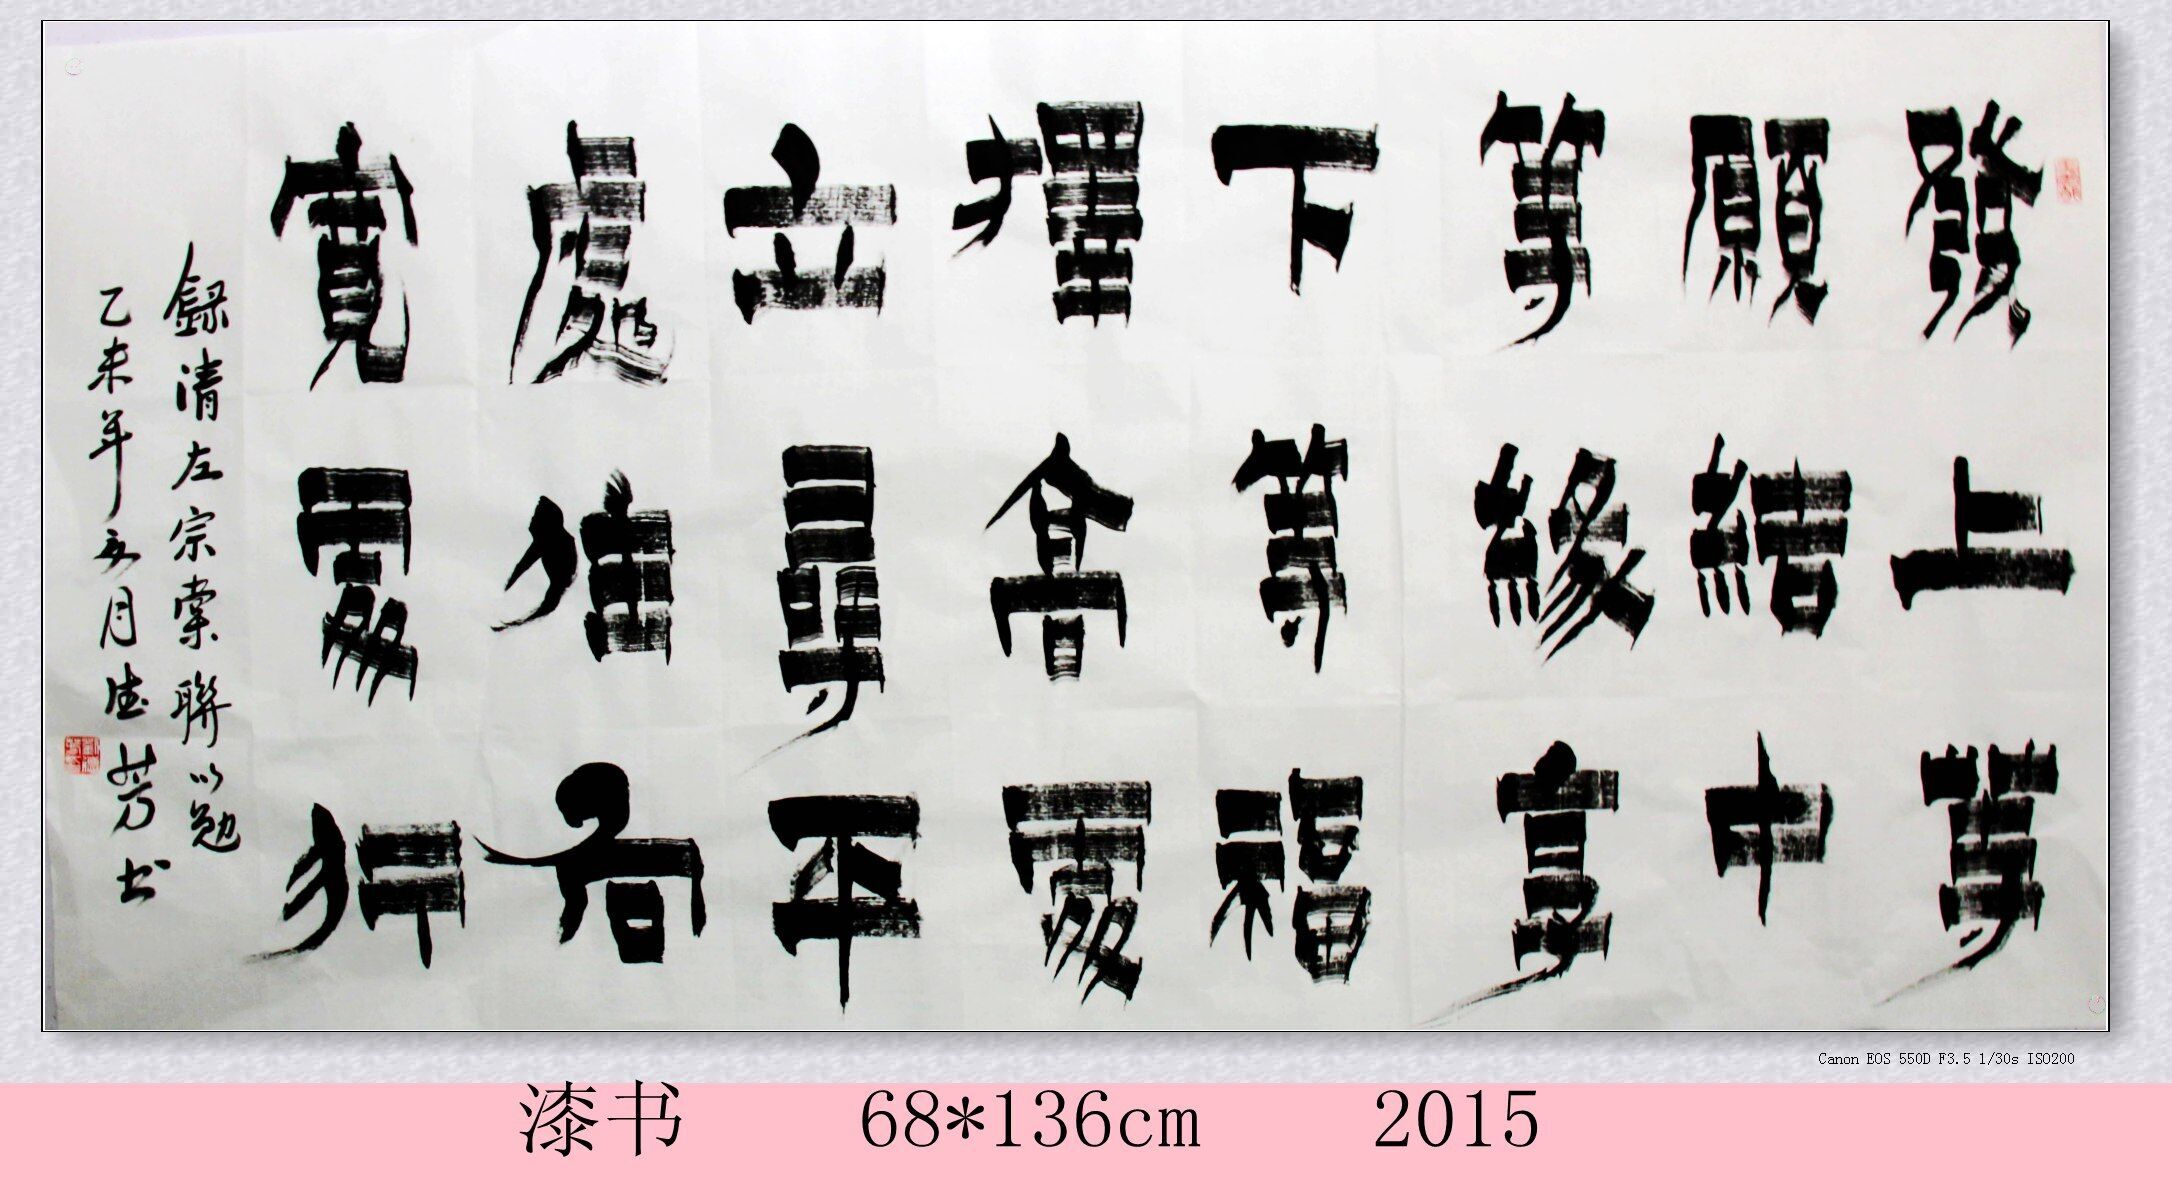 發上等
願結中
等緣享
下等福
擇高處
立尋平
處住向
寬處行
錄清左宗棠聯以勉
乙未年五月德芳书
Canon EOS 550D F3.5 1/30s ISO200
漆书 68*136cm 2015